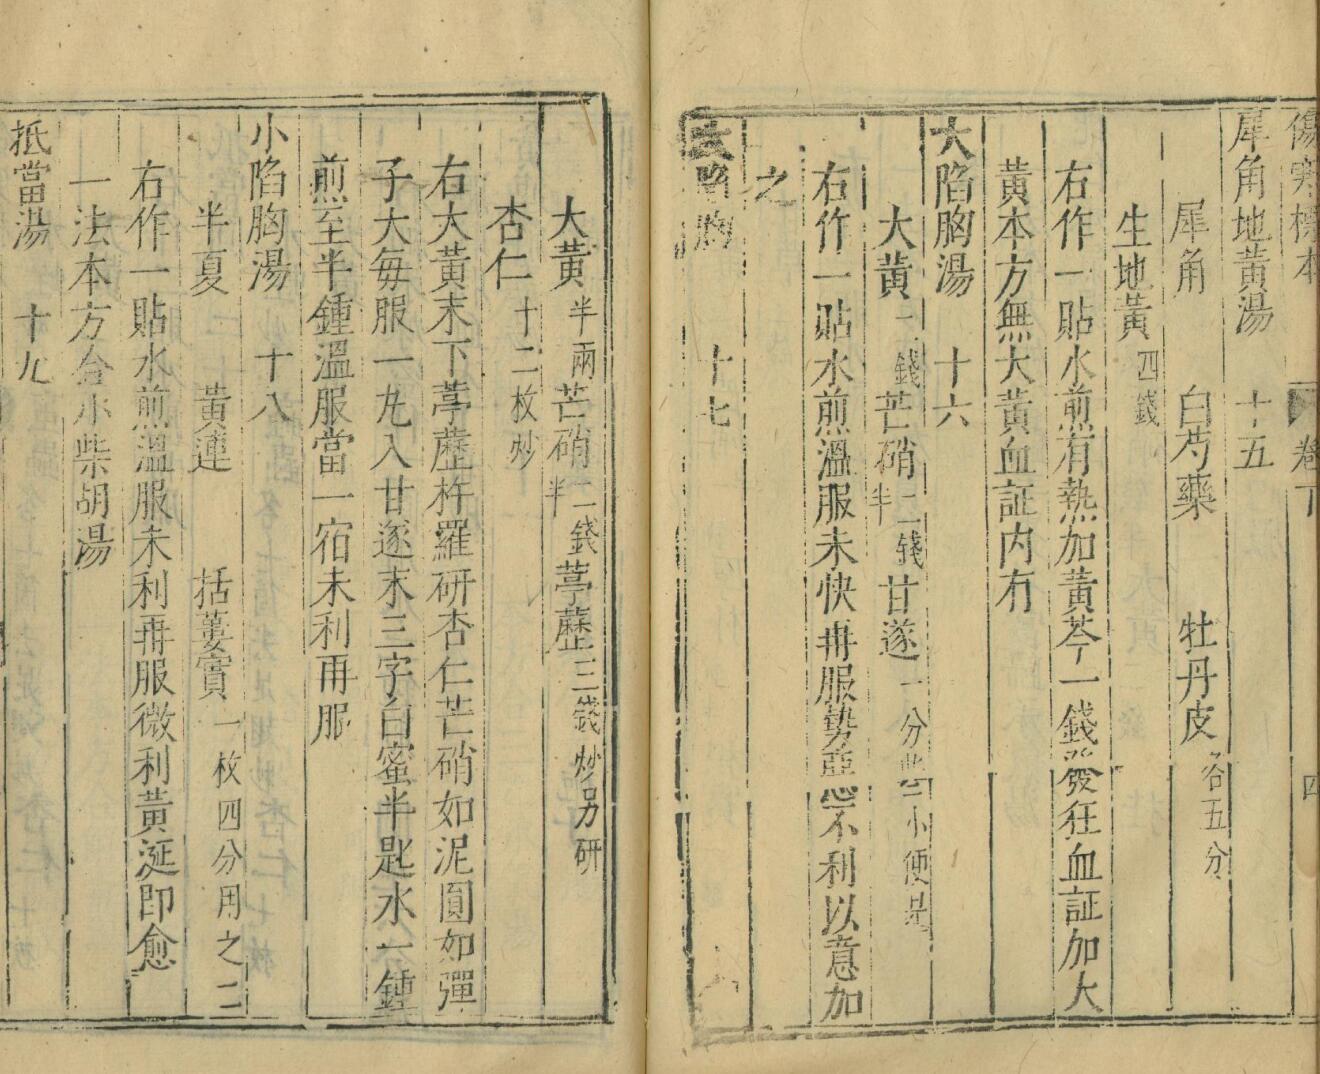 傷寒標本 卷下 四
犀角地黃湯 十五
犀角 白芍藥 牡丹皮 各五分
生地黃 四錢
右作一貼水煎有熱加黃芩一錢發狂血証加大
黃本方無大黃血証內有
大陷胸湯 十六
大黃 二錢 芒硝 二錢半 甘遂 一分 小便是
右作一貼水煎溫服未快再服勢惡不利以意加
之
大陷胸 十七
大黃 半兩 芒硝 二錢半 葶藶 三錢炒另研
杏仁 十二枚炒
右大黃末下葶藶杵羅研杏仁芒硝如泥圓如彈
子大每服一丸入甘逐末三字白蜜半匙水一鍾
煎至半鍾溫服當一宿未利再服
小陷胸湯 十八
半夏 黃連 括蔞實 一枚四分用之二
右作一貼水煎溫服未利再服微利黃涎即愈
一法本方合小柴胡湯
抵當湯 十九